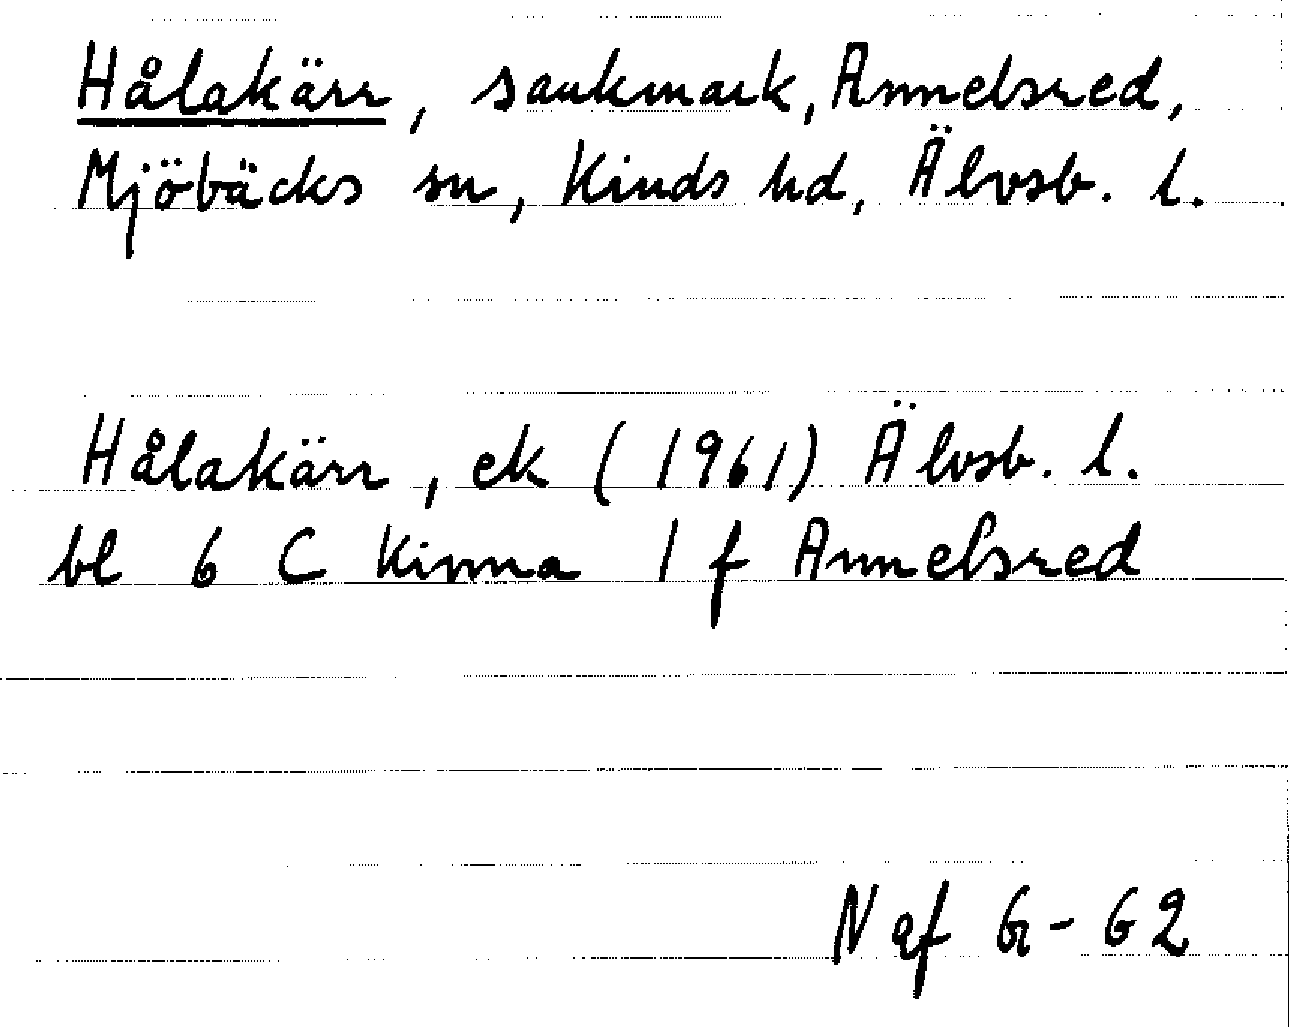 Hålakärr, sankmark, Annelsred,
Mjöbäcks sn, Kinds hd, Älvsb. l.
Hålakärr, ek (1961) Älvsb. l.
bl 6 C Kinna 1 f Annelsred
Naf G-62